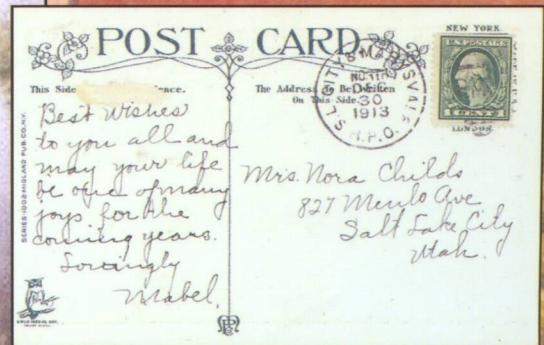 NEW YORK
POST CARD
This Side
The Address to Be Written
On This Side.
DEC
30
1913
R.P.O.
U.S. POSTAGE
LONDON
Best Wishes
to you all and
may your life
be one of many
joys for the
coming years.
Lovingly
Mabel.
Mrs. Nora Childs
827 Menlo Ave
Salt Lake City
Utah.